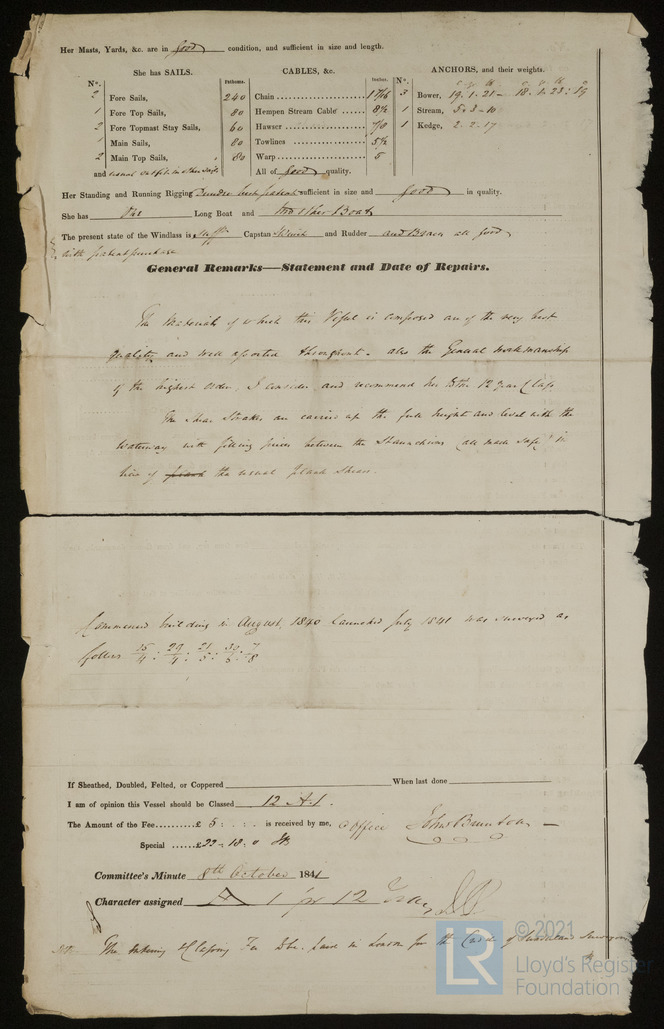 Her Masts, Yards, &c. are in good condition, and sufficient in size and length.
She has SAILS.
CABLES, &c.
ANCHORS, and their weights.
No.
Fathoms.
Inches.
No.
2 Fore Sails,
240 Chain 1 7/16
3 Bower, 19.1.21 - 18.1.23: 19
1 Fore Top Sails,
80 Hempen Stream Cable 8½
1 Stream, 5.3.10
2 Fore Topmast Stay Sails,
60 Hawser 7/0
1 Kedge, 2.2.17
1 Main Sails,
80 Towlines 5½
2 Main Top Sails,
80 Warp 5
and usual outfit in other Sails
All of good quality.
Her Standing and Running Rigging sufficient in size and good in quality.
She has One Long Boat and two other Boats
The present state of the Windlass is Capstan Winch and Rudder and Braces all good
with patent purchase
General Remarks—Statement and Date of Repairs.
The Materials of which this Vessel is composed are of the very best
quality and well assorted throughout. also the General workmanship
of the highest order, I consider and recommend her to the 12 year Class
The Shear Strakes are carried up the full height and level with the
Waterway with filling pieces between the Staunchions (all made safe) in
lieu of plank the usual plank shear.
Commenced building in August, 1840 Launched July 1841 was surveyed as
follows 15/4 : 29/4 : 21/5 : 30/5 : 7/8
If Sheathed, Doubled, Felted, or Coppered When last done
I am of opinion this Vessel should be Classed 12 A.1.
The Amount of the Fee £ 5 : . . is received by me, Office John Brunton
Special £22 - 18 - 0
Committee's Minute 8th October 1841
Character assigned A 1 for 12 Years
The Entering & Classing Fee to be paid in London for the Credit of Sunderland Surveyors
© 2021
LR
Lloyd's Register
Foundation